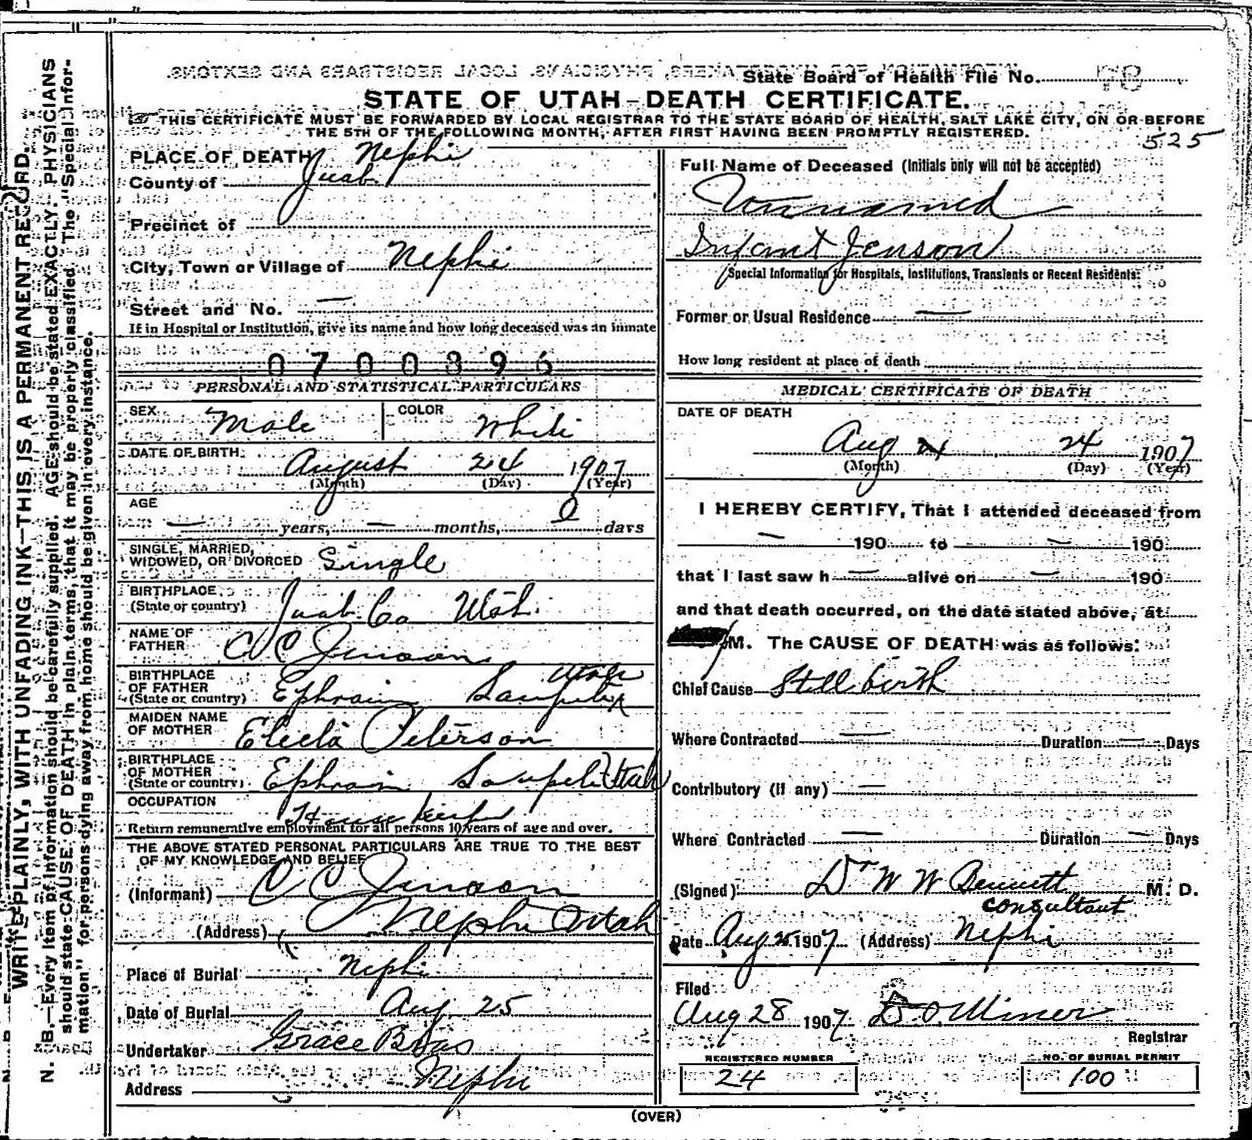 State Board of Health File No.
STATE OF UTAH—DEATH CERTIFICATE.
THIS CERTIFICATE MUST BE FORWARDED BY LOCAL REGISTRAR TO THE STATE BOARD OF HEALTH, SALT LAKE CITY, ON OR BEFORE
THE 5TH OF THE FOLLOWING MONTH, AFTER FIRST HAVING BEEN PROMPTLY REGISTERED.
525
WRITE PLAINLY, WITH UNFADING INK—THIS IS A PERMANENT RECORD.
N. B.—Every item of information should be carefully supplied. AGE should be stated EXACTLY. PHYSICIANS
should state CAUSE OF DEATH in plain terms, that it may be properly classified. The "Special Infor-
mation" for persons dying away from home should be given in every instance.
PLACE OF DEATH Nephi
County of Juab
Precinct of
City, Town or Village of Nephi
Street and No. —
If in Hospital or Institution, give its name and how long deceased was an inmate
0700396
PERSONAL AND STATISTICAL PARTICULARS
SEX Male COLOR White
DATE OF BIRTH August 24 1907
(Month) (Day) (Year)
AGE
— years, — months, 0 days
SINGLE, MARRIED,
WIDOWED, OR DIVORCED Single
BIRTHPLACE
(State or country) Juab Co Utah
NAME OF
FATHER C C Jenson
BIRTHPLACE
OF FATHER
(State or country) Ephraim Sanpete Utah
MAIDEN NAME
OF MOTHER Electa Peterson
BIRTHPLACE
OF MOTHER
(State or country) Ephraim Sanpete Utah
OCCUPATION
House keeper
Return remunerative employment for all persons 10 years of age and over.
THE ABOVE STATED PERSONAL PARTICULARS ARE TRUE TO THE BEST
OF MY KNOWLEDGE AND BELIEF
(Informant) C C Jenson
(Address) Nephi Utah
Place of Burial Nephi
Date of Burial Aug 25
Undertaker Grace Bros
Address Nephi
Full Name of Deceased (Initials only will not be accepted)
Unnamed
Infant Jenson
Special Information for Hospitals, Institutions, Transients or Recent Residents:
Former or Usual Residence —
How long resident at place of death
MEDICAL CERTIFICATE OF DEATH
DATE OF DEATH
Aug 24 1907
(Month) (Day) (Year)
I HEREBY CERTIFY, That I attended deceased from
— 190 to — 190
that I last saw h — alive on — 190
and that death occurred, on the date stated above, at
M. The CAUSE OF DEATH was as follows:
Chief Cause Still birth
Where Contracted — Duration — Days
Contributory (if any) —
Where Contracted — Duration — Days
(Signed) Dr W W Bennett M. D.
consultant
Date Aug 25 1907 (Address) Nephi
Filed
Aug 28 1907 D. O. Miner
Registrar
REGISTERED NUMBER
24
NO. OF BURIAL PERMIT
100
(OVER)